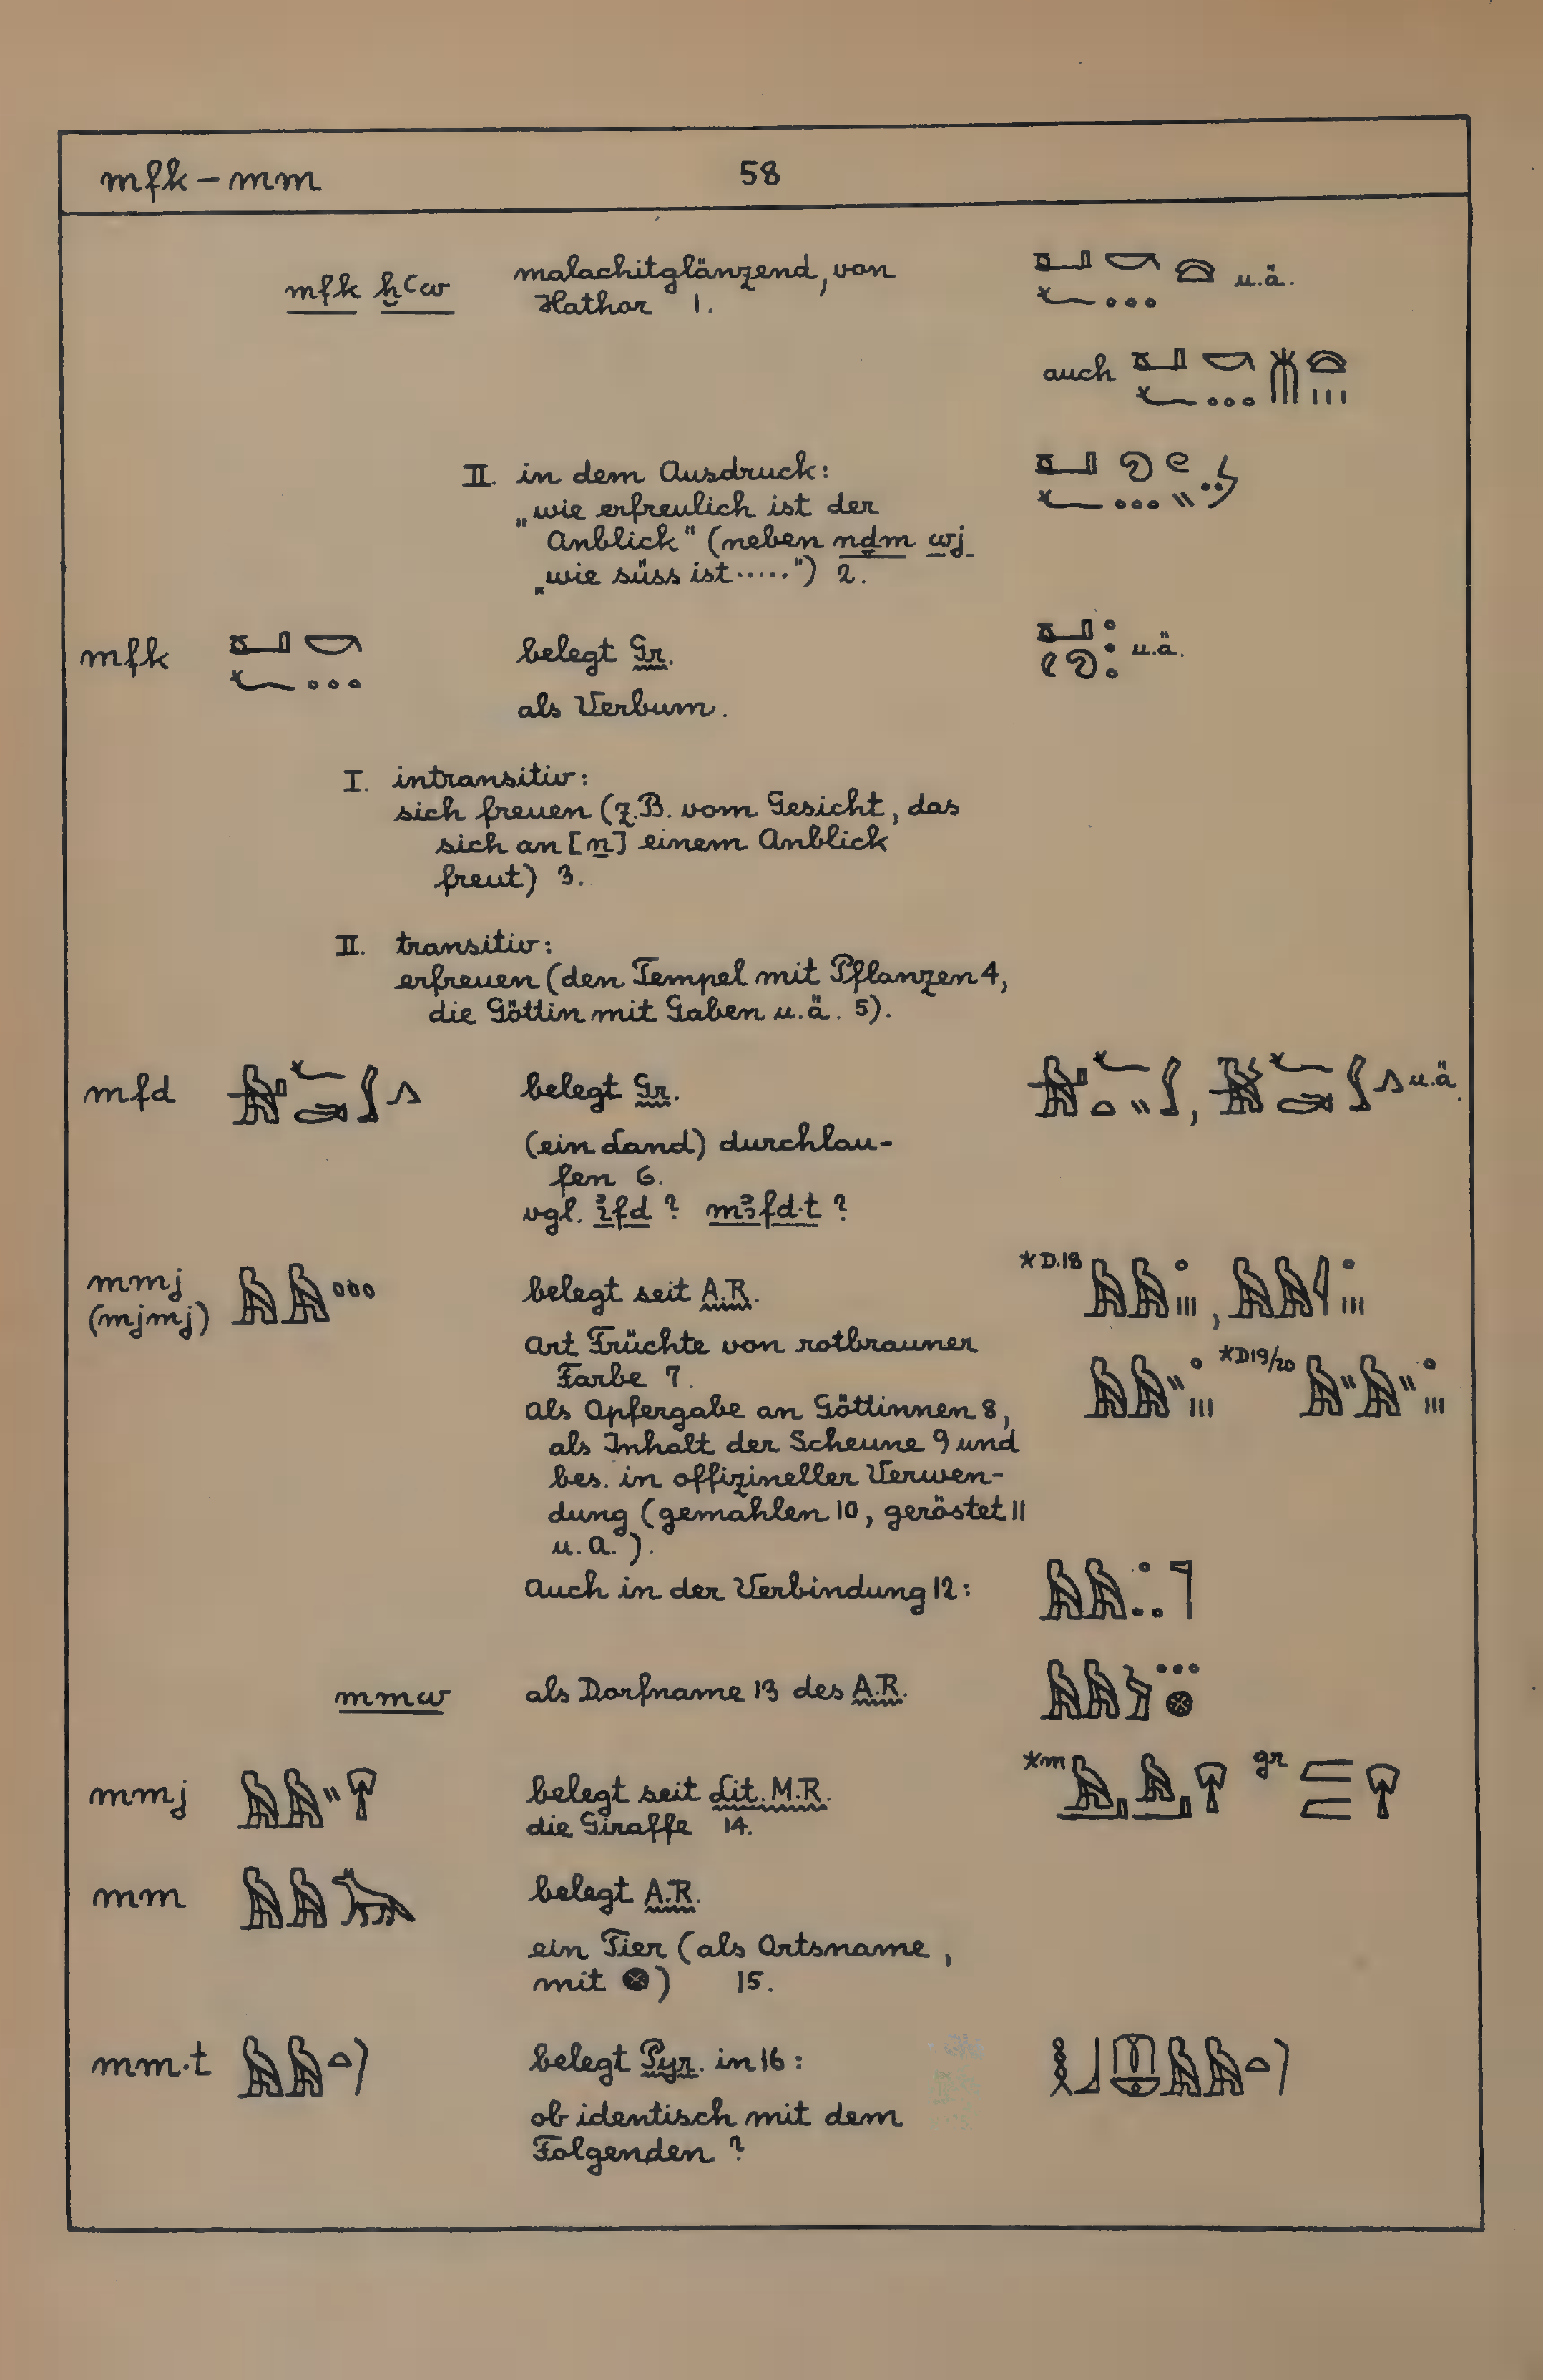 mfk – mm 58
mfk ḫꜥw malachitglänzend, von u.ä.
Hathor 1.
auch
II. in dem Ausdruck:
„wie erfreulich ist der
Anblick" (neben nḏm wj
„wie süss ist ....." ) 2.
mfk belegt Gr. u.ä.
als Verbum.
I. intransitiv:
sich freuen (z.B. vom Gesicht, das
sich an [n] einem Anblick
freut) 3.
II. transitiv:
erfreuen (den Tempel mit Pflanzen 4,
die Göttin mit Gaben u.ä. 5).
mfd belegt Gr. , u.ä.
(ein Land) durchlau-
fen 6.
vgl. ꞽfd ? mꜣfd·t ?
mmj belegt seit A.R. *D.18 ,
(mjmj)
Art Früchte von rotbrauner
Farbe 7. *D19/20
Als Opfergabe an Göttinnen 8,
als Inhalt der Scheune 9 und
bes. in offizineller Verwen-
dung (gemahlen 10, geröstet 11
u.a.).
Auch in der Verbindung 12:
mmw als Dorfname 13 des A.R.
mmj belegt seit Lit. M.R. *m gr
die Giraffe 14.
mm belegt A.R.
ein Tier (als Ortsname,
mit 𓊖) 15.
mm·t belegt Pyr. in 16:
ob identisch mit dem
Folgenden ?